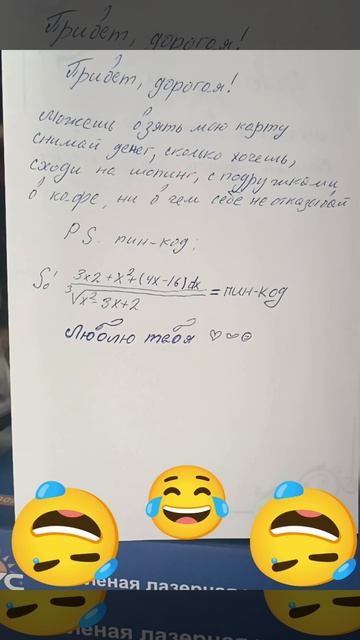 Привет, дорогая!
Привет, дорогая!
Можешь взять мою карту
снимай денег, сколько хочешь,
сходи на шопинг, с подружками
в кафе, ни в чем себе не отказывай
P.S. пин-код:
S₀¹ (3x2+x²+(4x-16)dx)/(³√(x²-3x+2)) = пин-код
Люблю тебя ♡∞☺
леная лазерная
леная лазерная